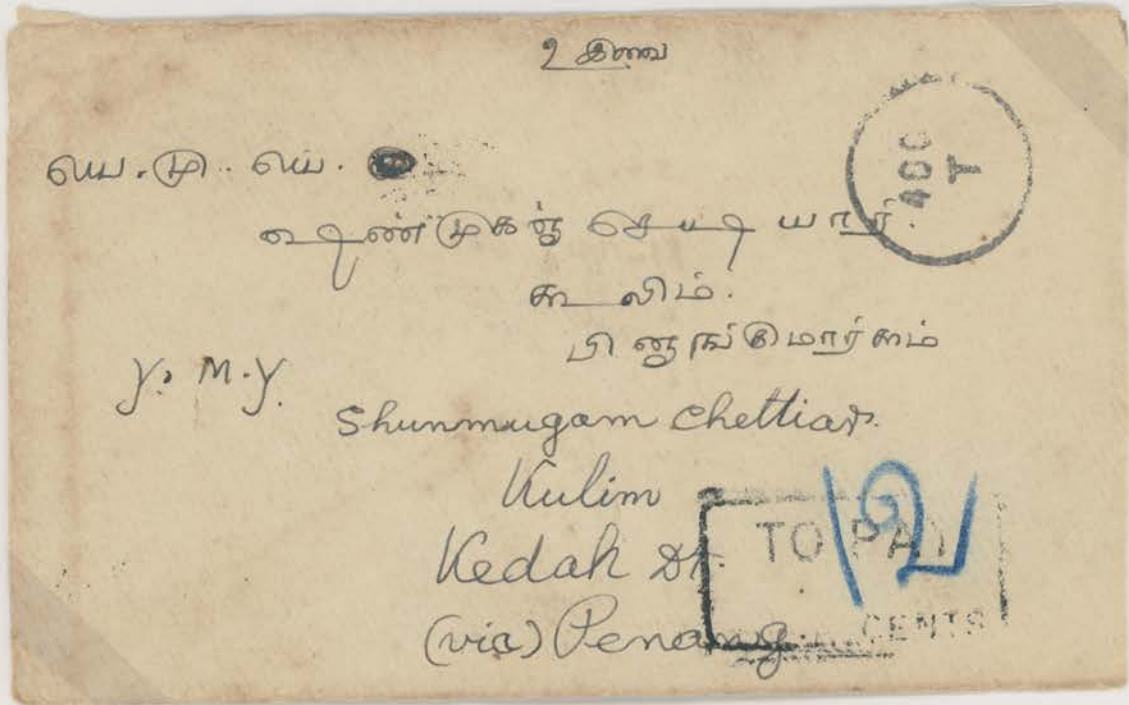 மு.
400
T
ஷண்முகஞ் செட்டியார்.
கூலிம்.
பினாங் மார்கம்
Y. M. Y.
Shunmugam Chettiar.
Kulim
Kedah St.
(via) Penang.
TO PAY
12
CENTS